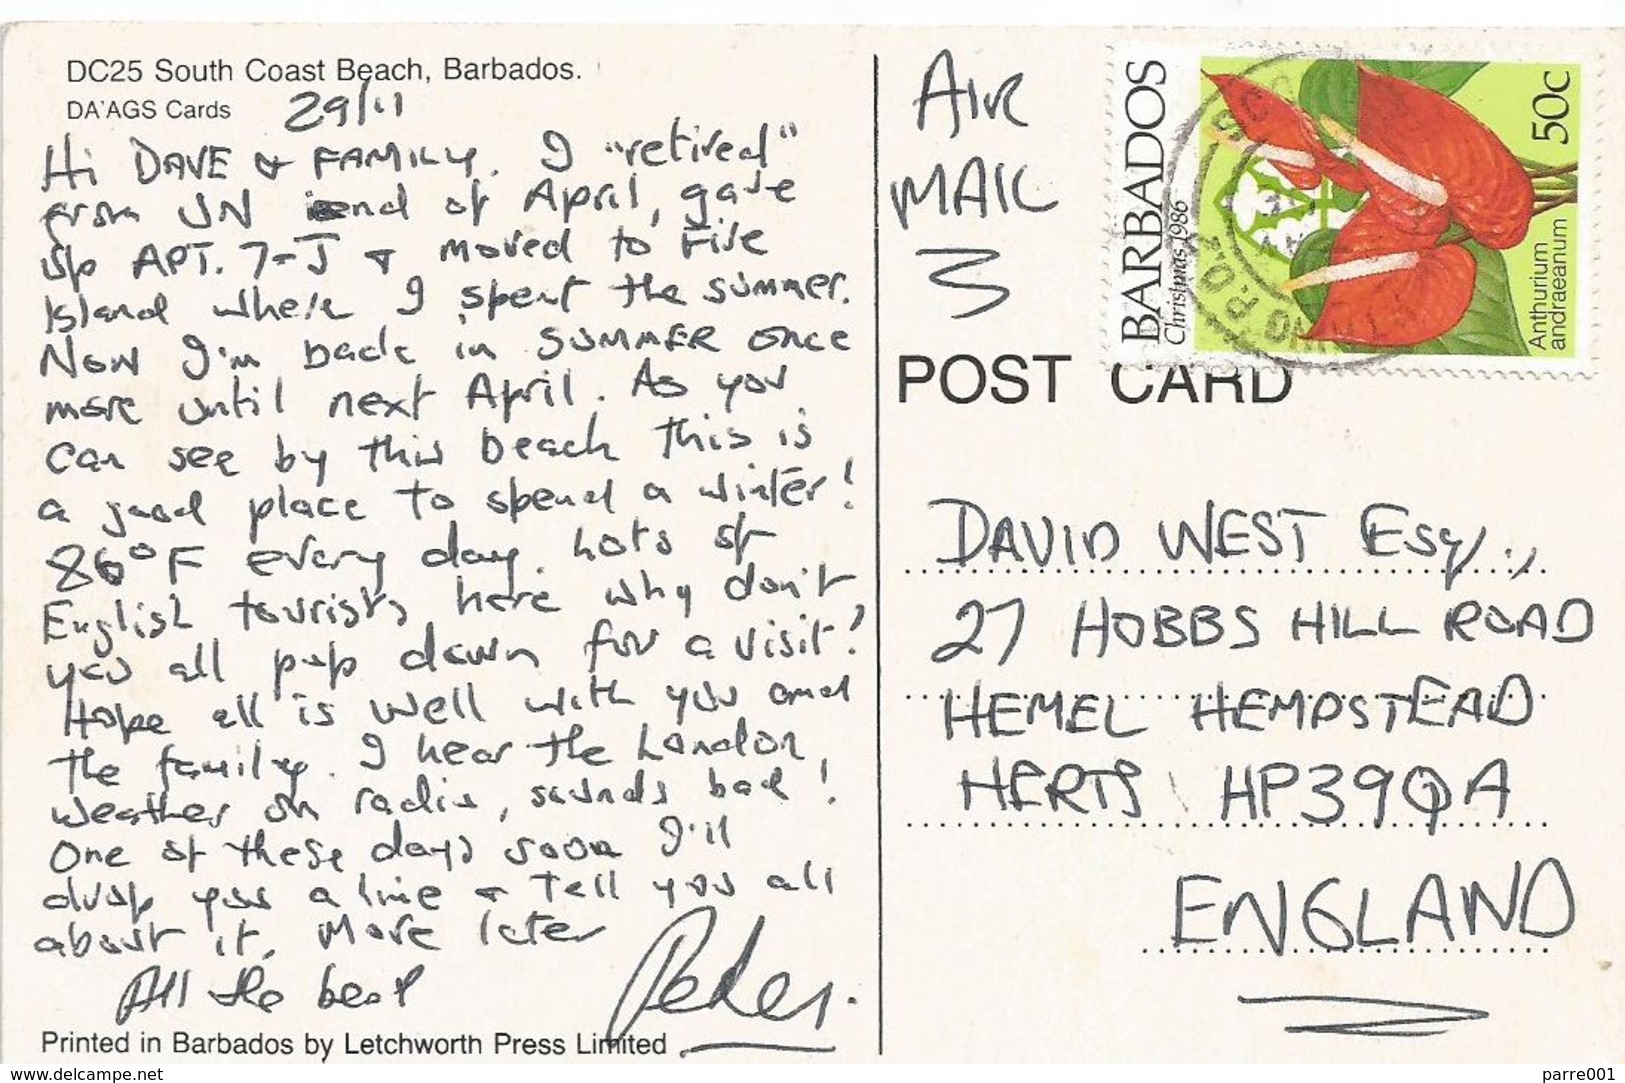 DC25 South Coast Beach, Barbados.
DA'AGS Cards
29/11
Hi DAVE & FAMILY. I "retired"
from UN end of April, gave
up APT. 7-J & moved to Fire
Island where I spent the summer.
Now I'm back in SUMMER once
more until next April. As you
can see by this beach this is
a good place to spend a winter!
86°F every day. Lots of
English tourists here why don't
you all pop down for a visit?
Hope all is well with you and
the family. I hear the London
weather on radio, sounds bad!
One of these days soon I'll
drop you a line & tell you all
about it. More later
All the best
Peter.
Printed in Barbados by Letchworth Press Limited
AIR
MAIL
BARBADOS
Christmas 1986
50c
Anthurium
andraeanum
POST CARD
DAVID WEST Esq.,
27 HOBBS HILL ROAD
HEMEL HEMPSTEAD
HERTS HP39QA
ENGLAND
www.delcampe.net
parre001